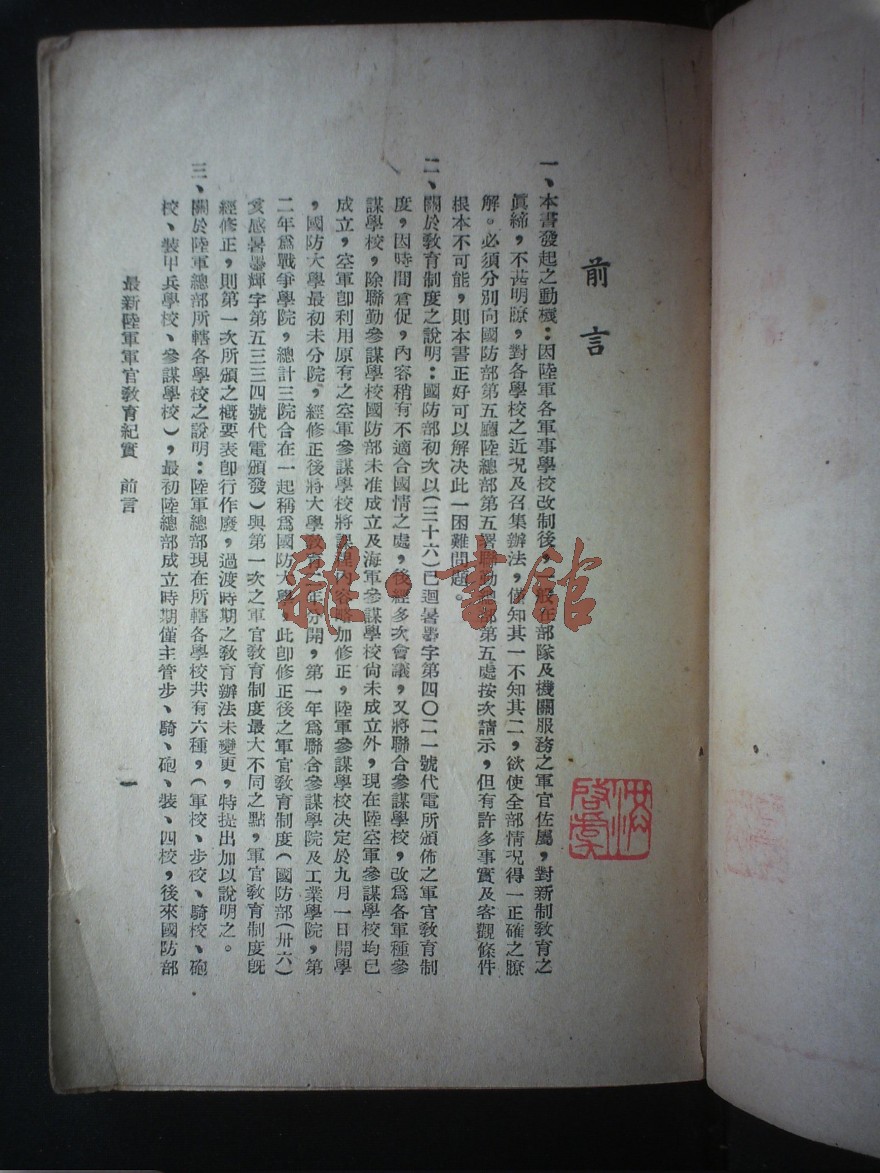 前言
一、本書發起之動機：因陸軍各軍事學校改制後，一般在部隊及機關服務之軍官佐屬，對新制教育之
眞締，不甚明瞭，對各學校之近況及召集辦法，僅知其一不知其二，欲使全部情況得一正確之瞭
解。必須分別向國防部第五廳陸總部第五署聯勤總部第五處按次請示，但有許多事實及客觀條件
根本不可能，則本書正好可以解决此一困難問題。
二、關於敎育制度之說明：國防部初次以(三十六)巳迴暑墨字第四〇二一號代電所頒佈之軍官敎育制
度，因時間倉促，內容稍有不適合國情之處，後經多次會議，又將聯合參謀學校，改爲各軍種參
謀學校，除聯勤參謀學校國防部未准成立及海軍參謀學校尙未成立外，現在陸空軍參謀學校均已
成立，空軍卽利用原有之空軍參謀學校將課程內容略加修正，陸軍參謀學校决定於九月一日開學
，國防大學最初未分院，經修正後將大學敎育二年分開，第一年爲聯合參謀學院及工業學院，第
二年爲戰爭學院，總計三院合在一起稱爲國防大學，此卽修正後之軍官敎育制度(國防部(卅六)
亥感暑墨輝字第五三三四號代電頒發)與第一次之軍官敎育制度最大不同之點，軍官敎育制度旣
經修正，則第一次所頒之概要表卽行作廢，過渡時期之敎育辦法未變更，特提出加以說明之。
三、關於陸軍總部所轄各學校之說明：陸軍總部現在所轄各學校共有六種，(軍校、步校、騎校、砲
校、裝甲兵學校、參謀學校)，最初陸總部成立時期僅主管步、騎、砲、裝、四校，後來國防部
最新陸軍軍官敎育紀實 前言 一
雜·書館